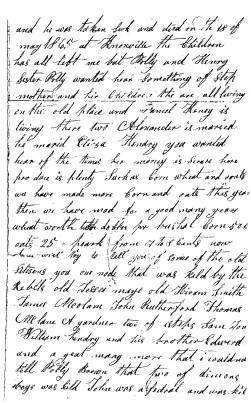 and he was taken sick and died on the 18 of
may 1865 at Knoxville the Children
has all left me but Polly and Henry
Sister Polly wanted hear Something of Step
mother and her Children the are all living
on the old place and Daniel Honey is
living there two Alexander is maried
he maried Henry you wanted
hear of the times her money is here
produce is plenty Such as Corn wheat and oats
we have made more Corn and oats this year
then we have mad for a good many years
wheat worth dollar per bushel Corn 50
oats 25 from cents now
try to tell you of some of the old
you one node that was kild by the
Rebels old mage old Hiram Smith
James John Rutherford Thomas
gardner two of esteps Sons
William hendry and his brother Edward
and a great many more that i couldnt
tell Polly Brown that two of
boys was kild John was a fedral and was kild